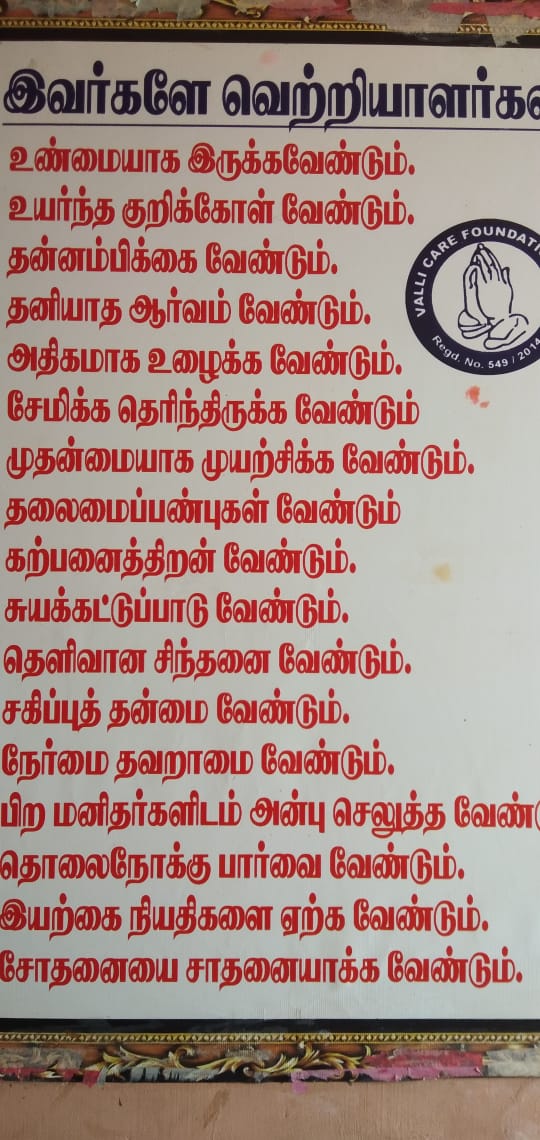 இவர்களே வெற்றியாளர்கள
உண்மையாக இருக்கவேண்டும்.
உயர்ந்த குறிக்கோள் வேண்டும்.
தன்னம்பிக்கை வேண்டும்.
தனியாத ஆர்வம் வேண்டும்.
அதிகமாக உழைக்க வேண்டும்.
சேமிக்க தெரிந்திருக்க வேண்டும்
முதன்மையாக முயற்சிக்க வேண்டும்.
தலைமைப்பண்புகள் வேண்டும்
கற்பனைத்திறன் வேண்டும்.
சுயக்கட்டுப்பாடு வேண்டும்.
தெளிவான சிந்தனை வேண்டும்.
சகிப்புத் தன்மை வேண்டும்.
நேர்மை தவறாமை வேண்டும்.
பிற மனிதர்களிடம் அன்பு செலுத்த
தொலைநோக்கு பார்வை வேண்டும்.
இயற்கை நியதிகளை ஏற்க வேண்டும்.
சோதனையை சாதனையாக்க வேண்டும்.
VALLI CARE FOUNDATI
Regd. No. 549 / 2014